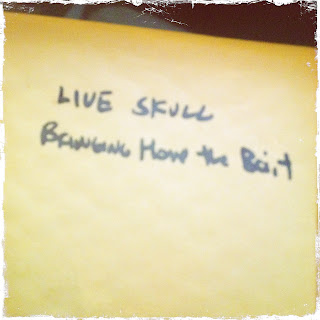 LIVE SKULL
Bringing Home the Bait